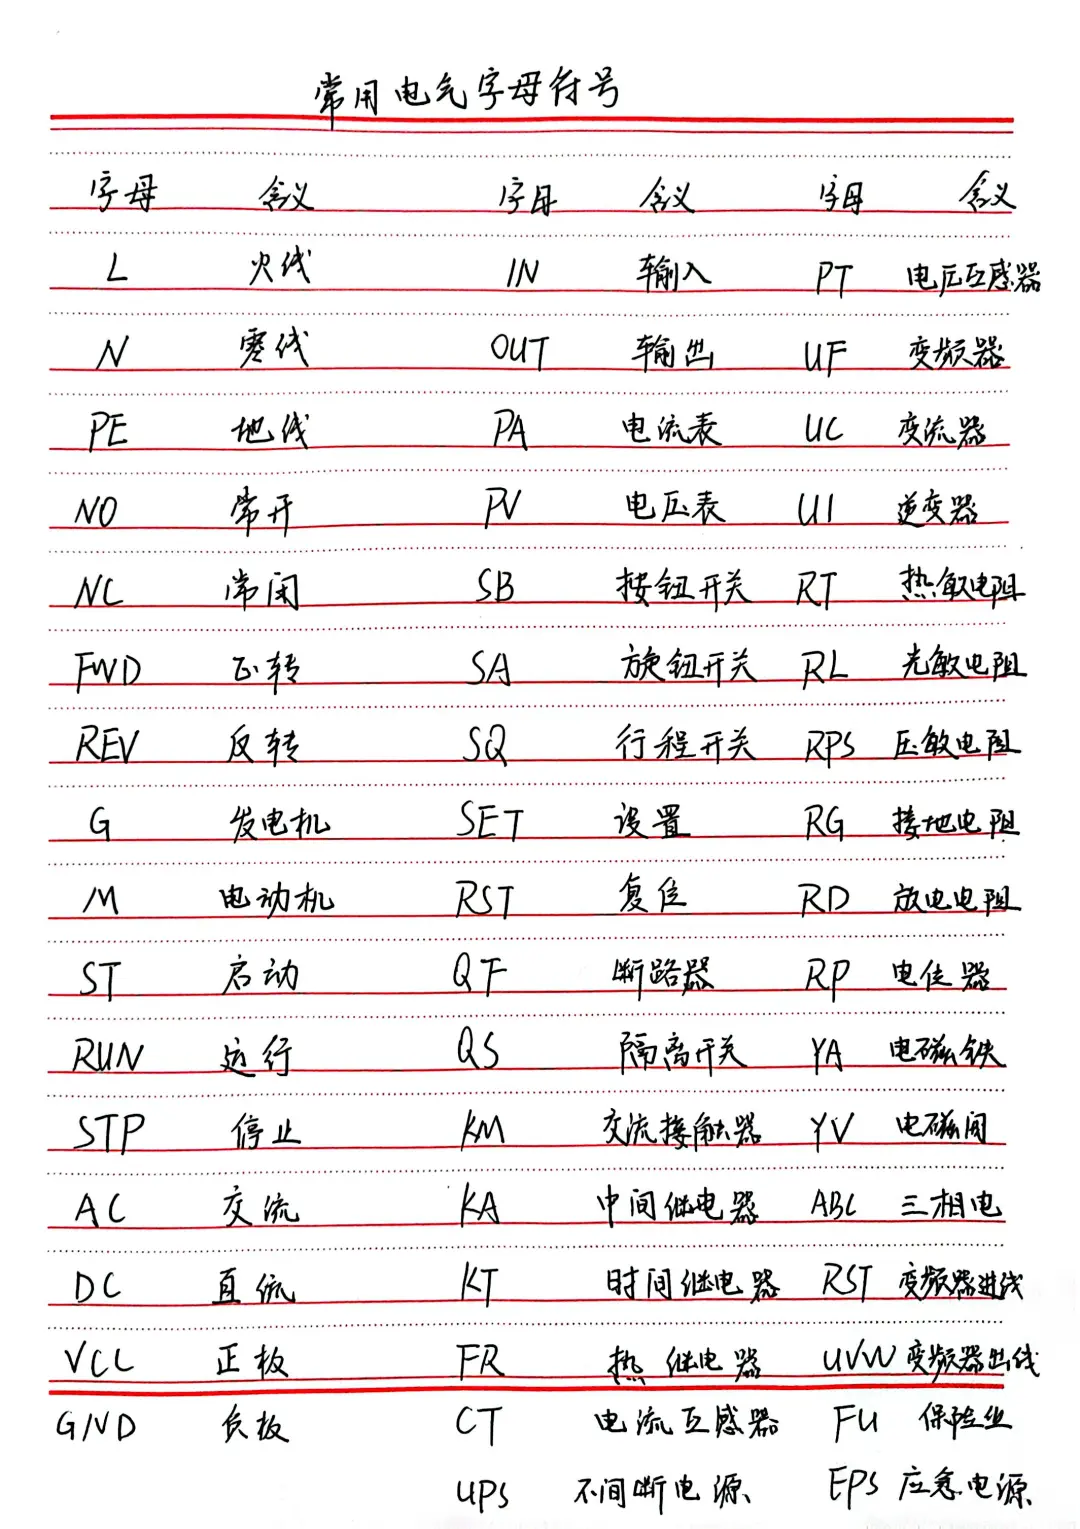 常用电气字母符号
字母 含义 字母 含义 字母 含义
L 火线 IN 输入 PT 电压互感器
N 零线 OUT 输出 UF 变频器
PE 地线 PA 电流表 UC 变流器
NO 常开 PV 电压表 UI 逆变器
NC 常闭 SB 按钮开关 RT 热敏电阻
FWD 正转 SA 旋钮开关 RL 光敏电阻
REV 反转 SQ 行程开关 RPS 压敏电阻
G 发电机 SET 设置 RG 接地电阻
M 电动机 RST 复位 RD 放电电阻
ST 启动 QF 断路器 RP 电位器
RUN 运行 QS 隔离开关 YA 电磁铁
STP 停止 KM 交流接触器 YV 电磁阀
AC 交流 KA 中间继电器 ABC 三相电
DC 直流 KT 时间继电器 RST 变频器进线
VCC 正极 FR 热继电器 UVW 变频器出线
GND 负极 CT 电流互感器 FU 保险丝
UPS 不间断电源 EPS 应急电源